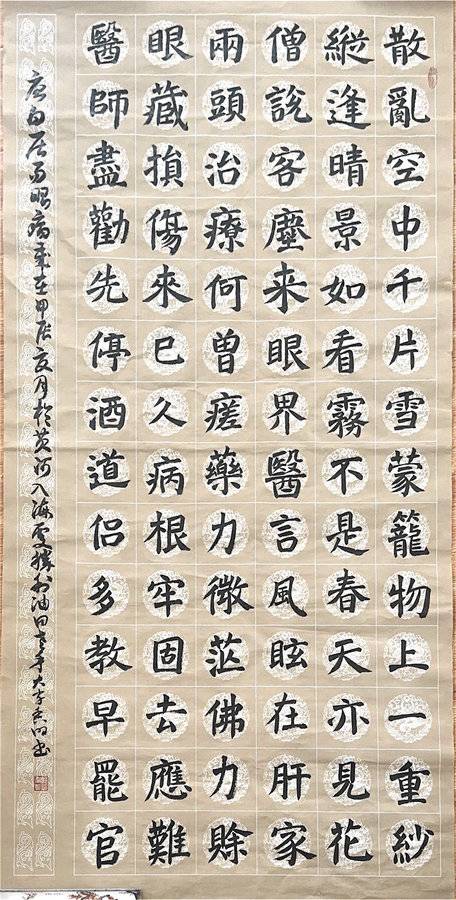 散亂空中千片雪蒙籠物上一重紗
縱逢晴景如看霧不是春天亦見花
僧說客塵来眼界醫言風眩在肝家
兩頭治療何曾瘥藥力微茫佛力賒
眼藏損傷來已久病根牢固去應難
醫師盡勸先停酒道侶多教早罷官
唐白居易眼病弍首甲辰夏月於黄河入海處勝利油田老年大学書